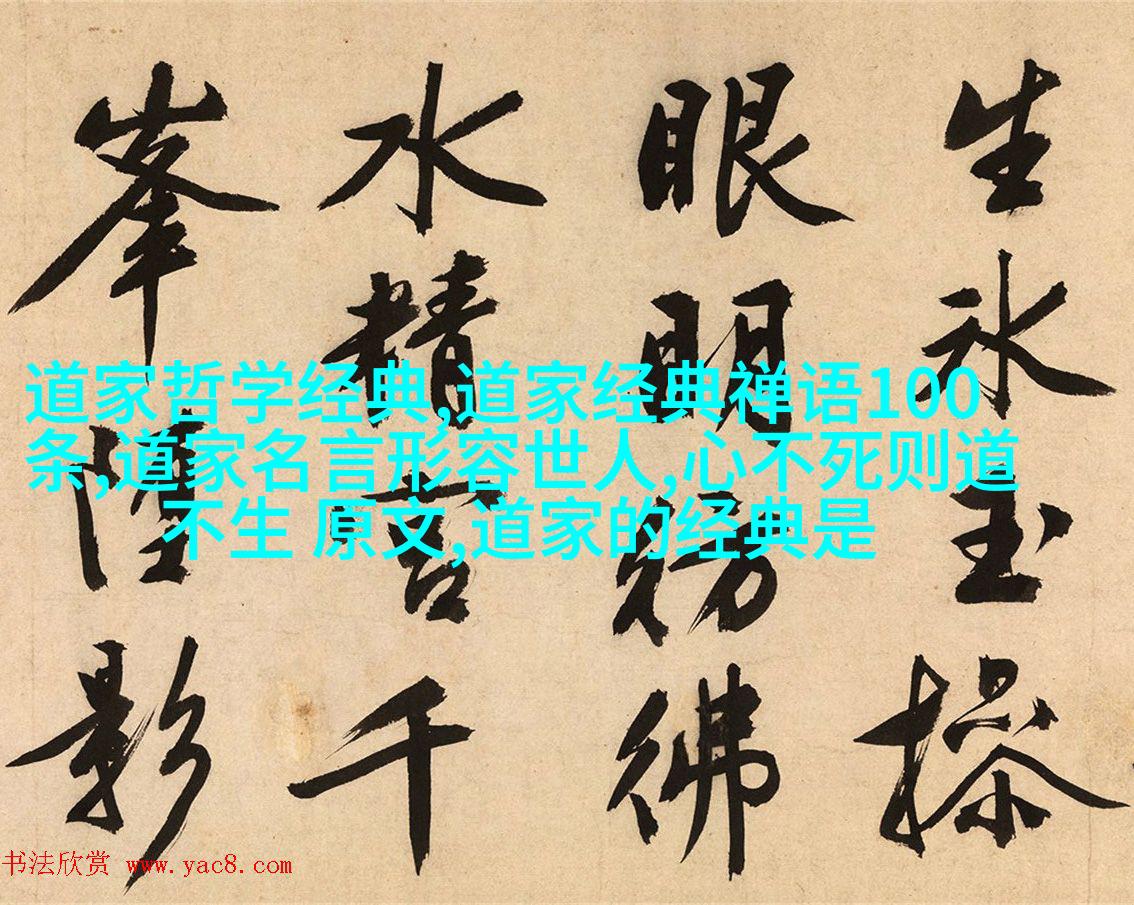 生氷玉操
眼明彷彿
水精宫千
峯影
道家哲学经典,道家经典禅语100
条,道家名言形容世人,心不死则道
不生 原文,道家的经典是
书法欣赏 www.yac8.com